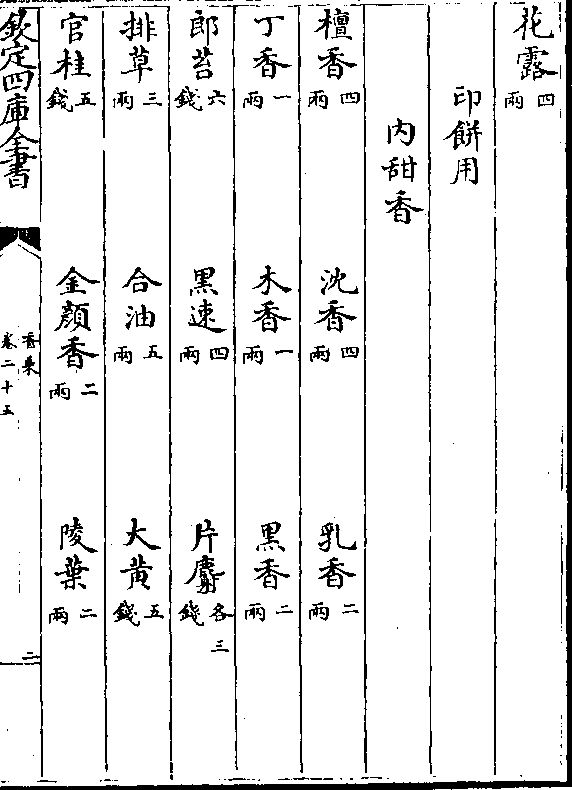 花露四兩
印餅用
内甜香
檀香四兩 沈香四兩 乳香二兩
丁香一兩 木香一兩 黒香二兩
郎苔六錢 黒速四兩 片麝各三錢
排草三兩 合油五兩 大黄五錢
官桂五錢 金顔香二兩 陵葉二兩
欽定四庫全書
香乗
卷二十五
二